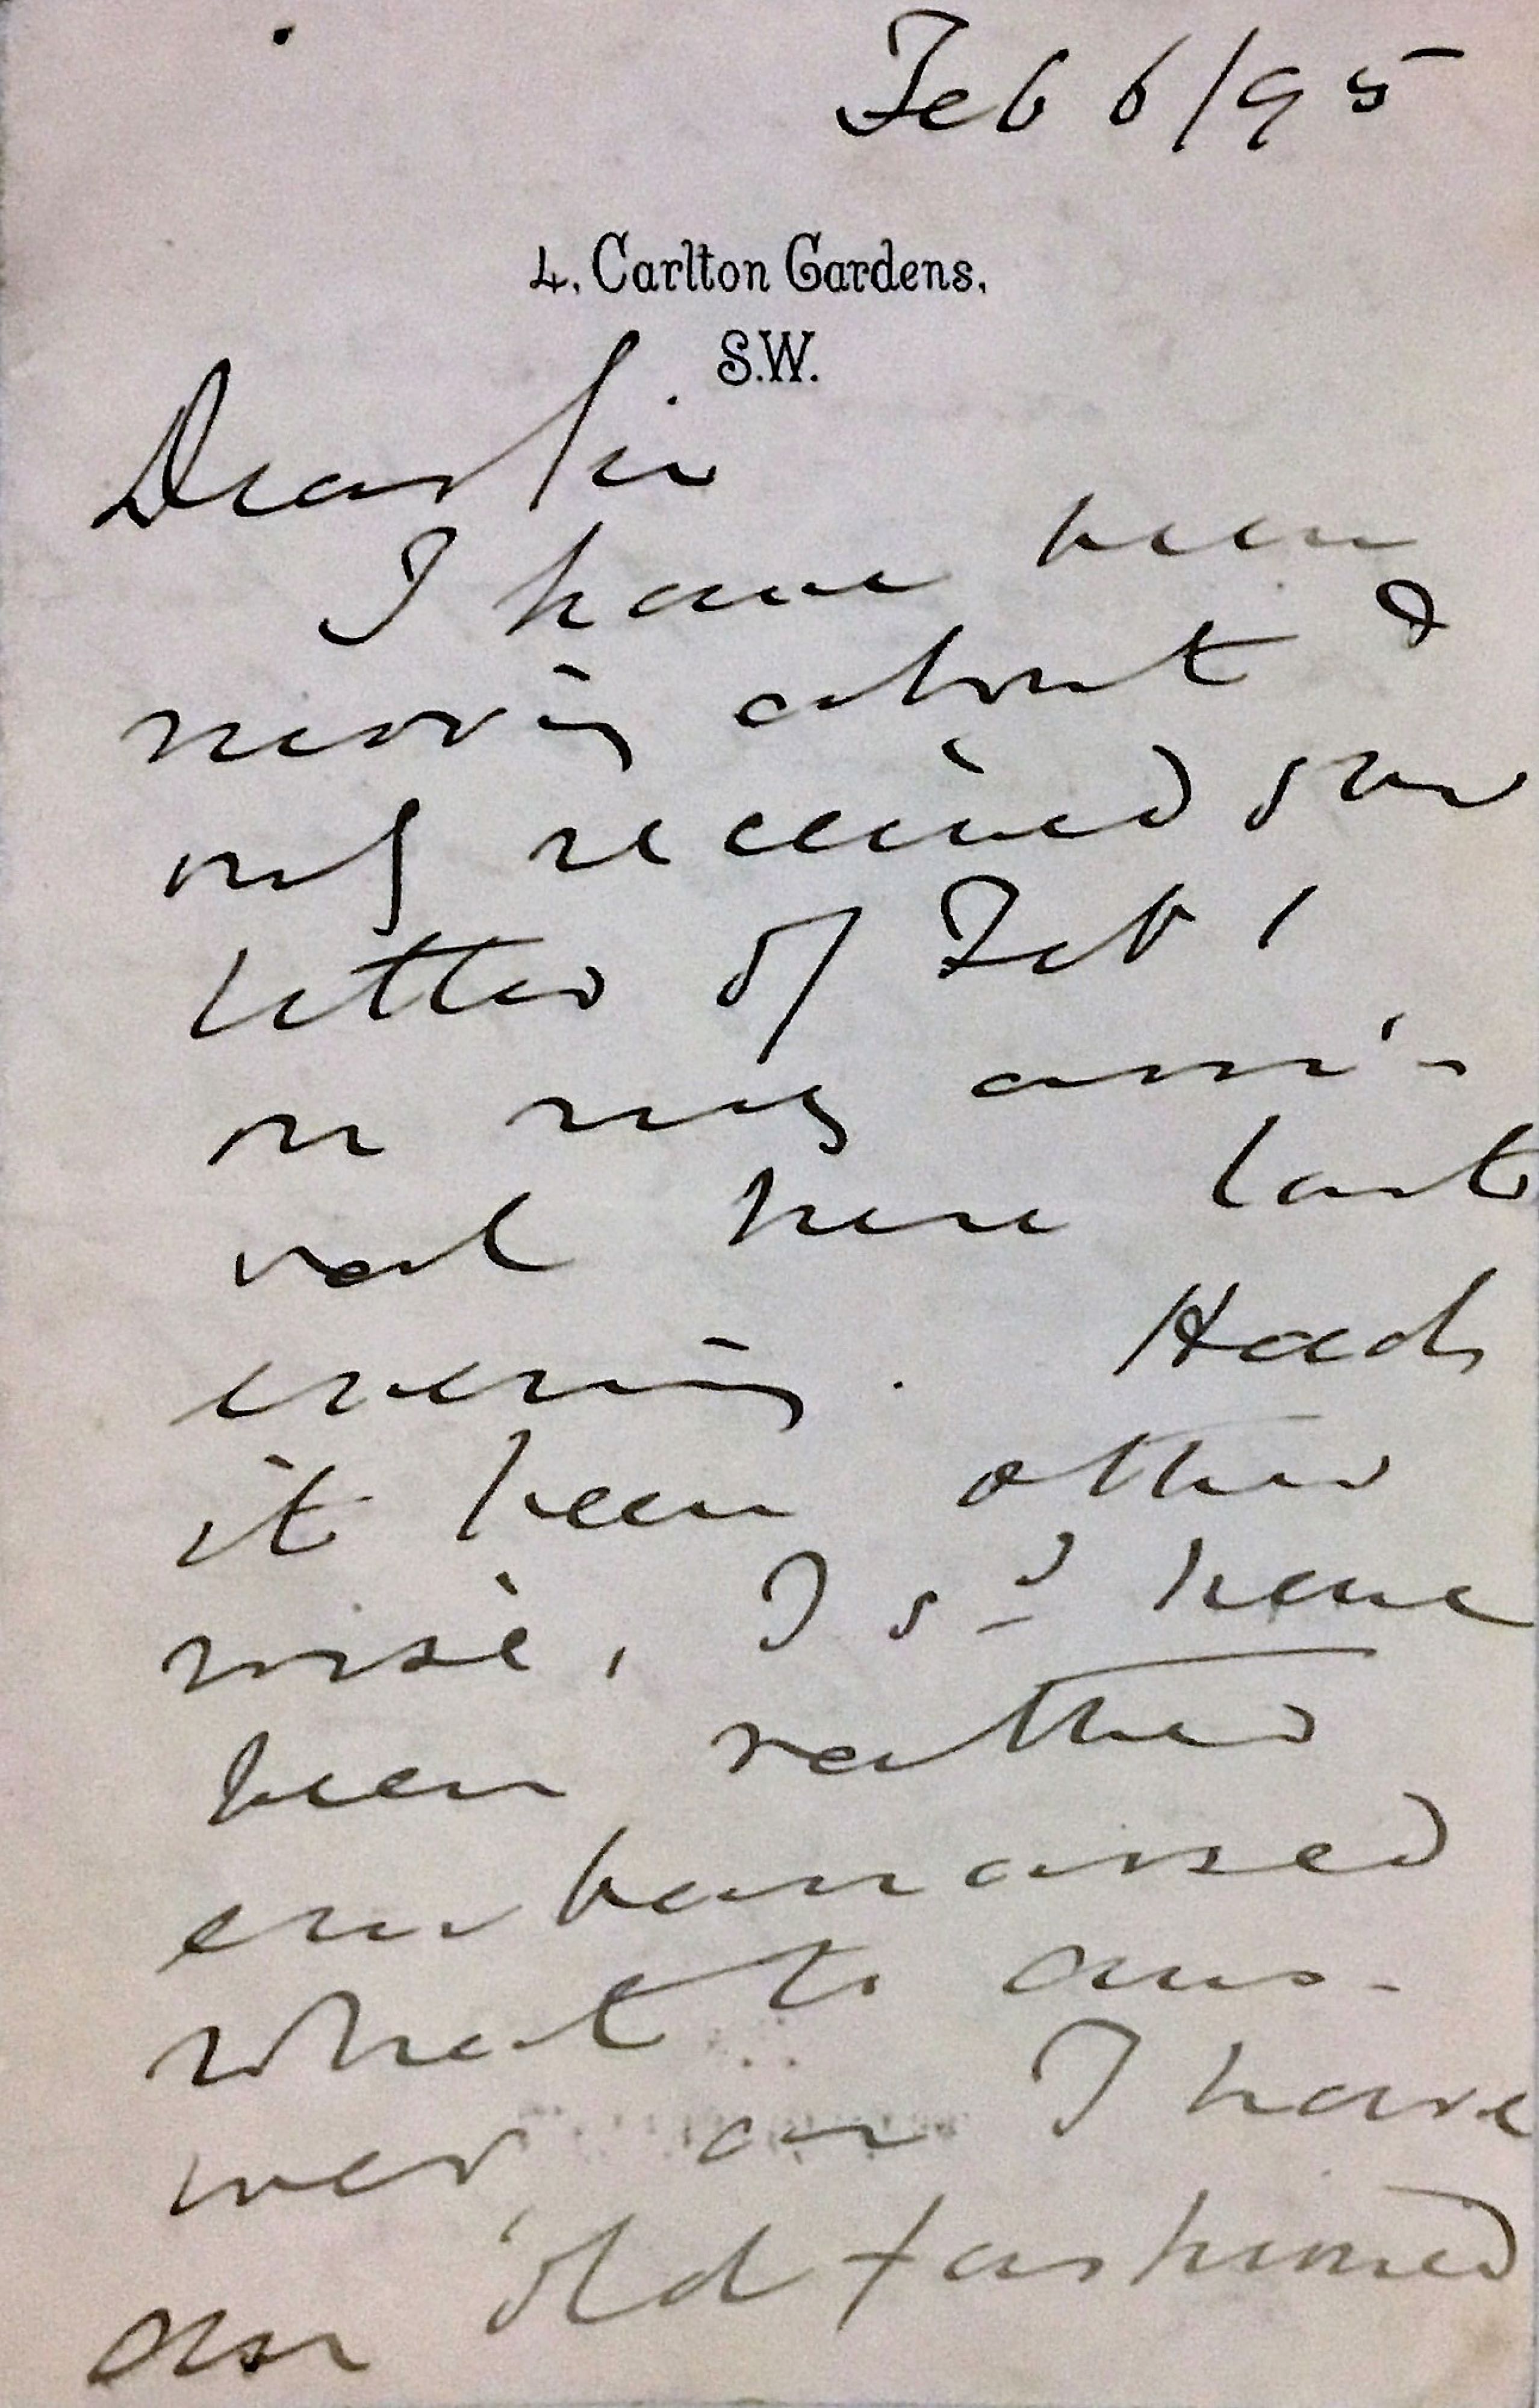 Feb 6/95
4, Carlton Gardens,
S.W.
Dear Sir
I have been
moving about &
only received your
letter of Feb 1
on my arri-
val here last
evening. Had
it been other
wise, I sd have
been rather
embarrassed
what to ans-
wer as I have
an old fashioned